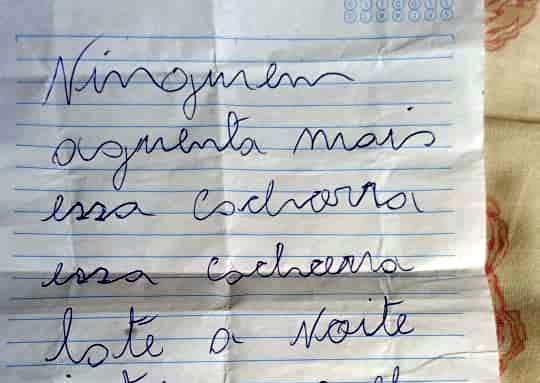 Ninguem
aguenta mais
essa cachorra
essa cachorra
late a Noite